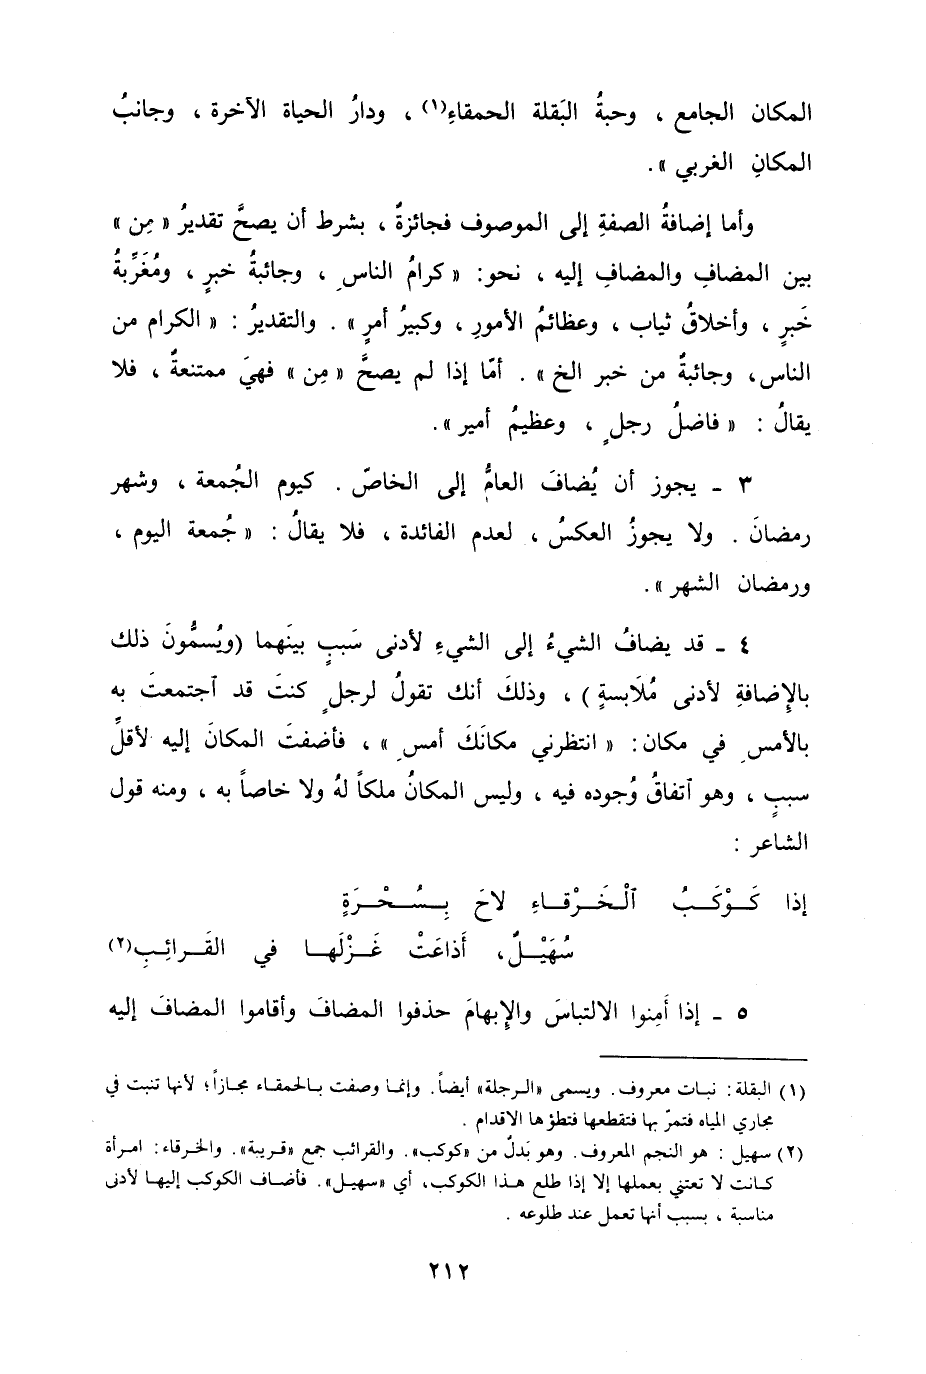 المكان الجامع ، وحبةُ البَقلة الحمقاءِ(١) ، ودارُ الحياة الآخرة ، وجانبُ
المكانِ الغربي ».
وأما إضافةُ الصفةِ إلى الموصوف فجائزةٌ ، بشرط أن يصحَّ تقديرُ « مِن »
بين المضافِ والمضافِ إليه ، نحو: « كرامُ الناسِ ، وجائبةُ خبرٍ ، ومُغَرِّبةُ
خَبرٍ ، وأخلاقُ ثياب ، وعظائمُ الأمورِ ، وكبيرُ أمرٍ » . والتقديرُ : « الكرام من
الناس، وجائبةٌ من خبر الخ » . أمّا إذا لم يصحَّ « مِن » فهيَ ممتنعةٌ ، فلا
يقالُ : « فاضلُ رجلٍ ، وعظيمُ أمير ».
٣ ـ يجوز أن يُضافَ العامُّ إلى الخاصّ . كيوم الجُمعة ، وشهر
رمضانَ . ولا يجوزُ العكسُ ، لعدم الفائدة ، فلا يقالُ : « جُمعة اليوم ،
ورمضان الشهر ».
٤ ـ قد يضافُ الشيءُ إلى الشيءِ لأدنى سَببٍ بينَهما (ويُسمُّونَ ذلك
بالإِضافةِ لأدنى مُلَابسةٍ ) ، وذلكَ أنك تقولُ لرجلٍ كنتَ قد اجتمعتَ به
بالأمسِ في مكان: « انتظرني مكانَكَ أمسِ » ، فأضفتَ المكانَ إليه لأقلِّ
سببٍ ، وهو اتفاقُ وُجوده فيه ، وليس المكانُ ملكاً لهُ ولا خاصاً به ، ومنه قول
الشاعر :
إذا كَــوْكَــبُ ٱلْخَــرْقــاءِ لاحَ بِــسُــحْــرَةٍ
سُهَيْــلٌ، أَذاعَتْ غَــزْلَهــا في القَــرائِــبِ(٢)
٥ ـ إذا أَمِنوا الالتباسَ والإِبهامَ حذفوا المضافَ وأقاموا المضافَ إليه
(١) البقلة : نبات معروف. ويسمى «الرجلة» أيضاً. وإنما وصفت بالحمقاء مجازاً؛ لأنها تنبت في
مجاري المياه فتمرّ بها فتقطعها فتطؤها الاقدام .
(٢) سهيل : هو النجم المعروف. وهو بَدلٌ من «كوكب». والقرائب جمع «قريبة». والخرقاء: امرأة
كانت لا تعتني بعملها إلا إذا طلع هذا الكوكب، أي «سهيل». فأضاف الكوكب إليها لأدنى
مناسبة ، بسبب أنها تعمل عند طلوعه .
٢١٢